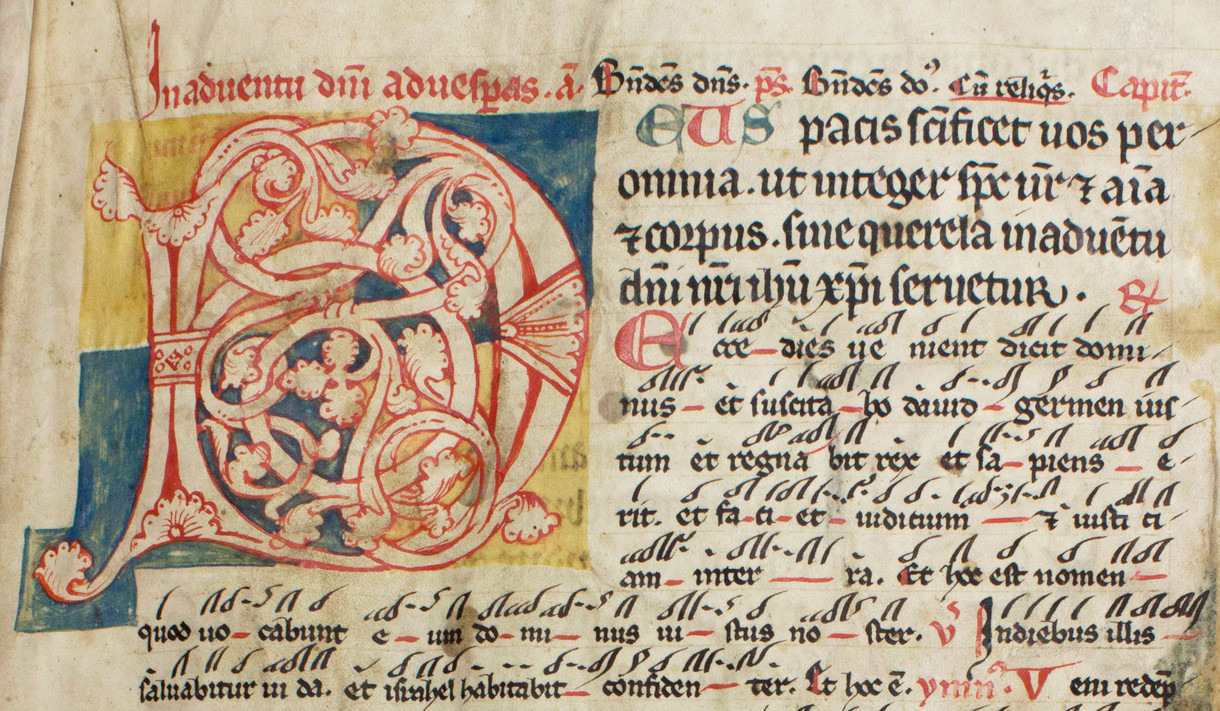 In aduentu dñi ad uesp̲as. ā. Bñdcs dns. ps. Bñdcs do⁹. Cū relıq̇s. Capıt̄.
DEUS pacis scīficet uos per
omnia. ut integer spc ur̄ ⁊ aīa
⁊ corpus. sine querela in aduētu
dñi nr̄i ihū xp̄i seruetur. R̸
Ecce dies ue nient dicit domi
nus et suscita bo dauid germen ius
tum et regna bit rex et sa piens e
rit. et fa ci et iudicium ⁊ iusti ci
am in ter ra. Et hoc est nomen
quod uo cabunt e um do mi nus iu stus no ster. V̸ In diebus illis
saluabitur iu da. et israhel habitabit confiden ter. Et hoc ē. ymn⁹. Veni redēp